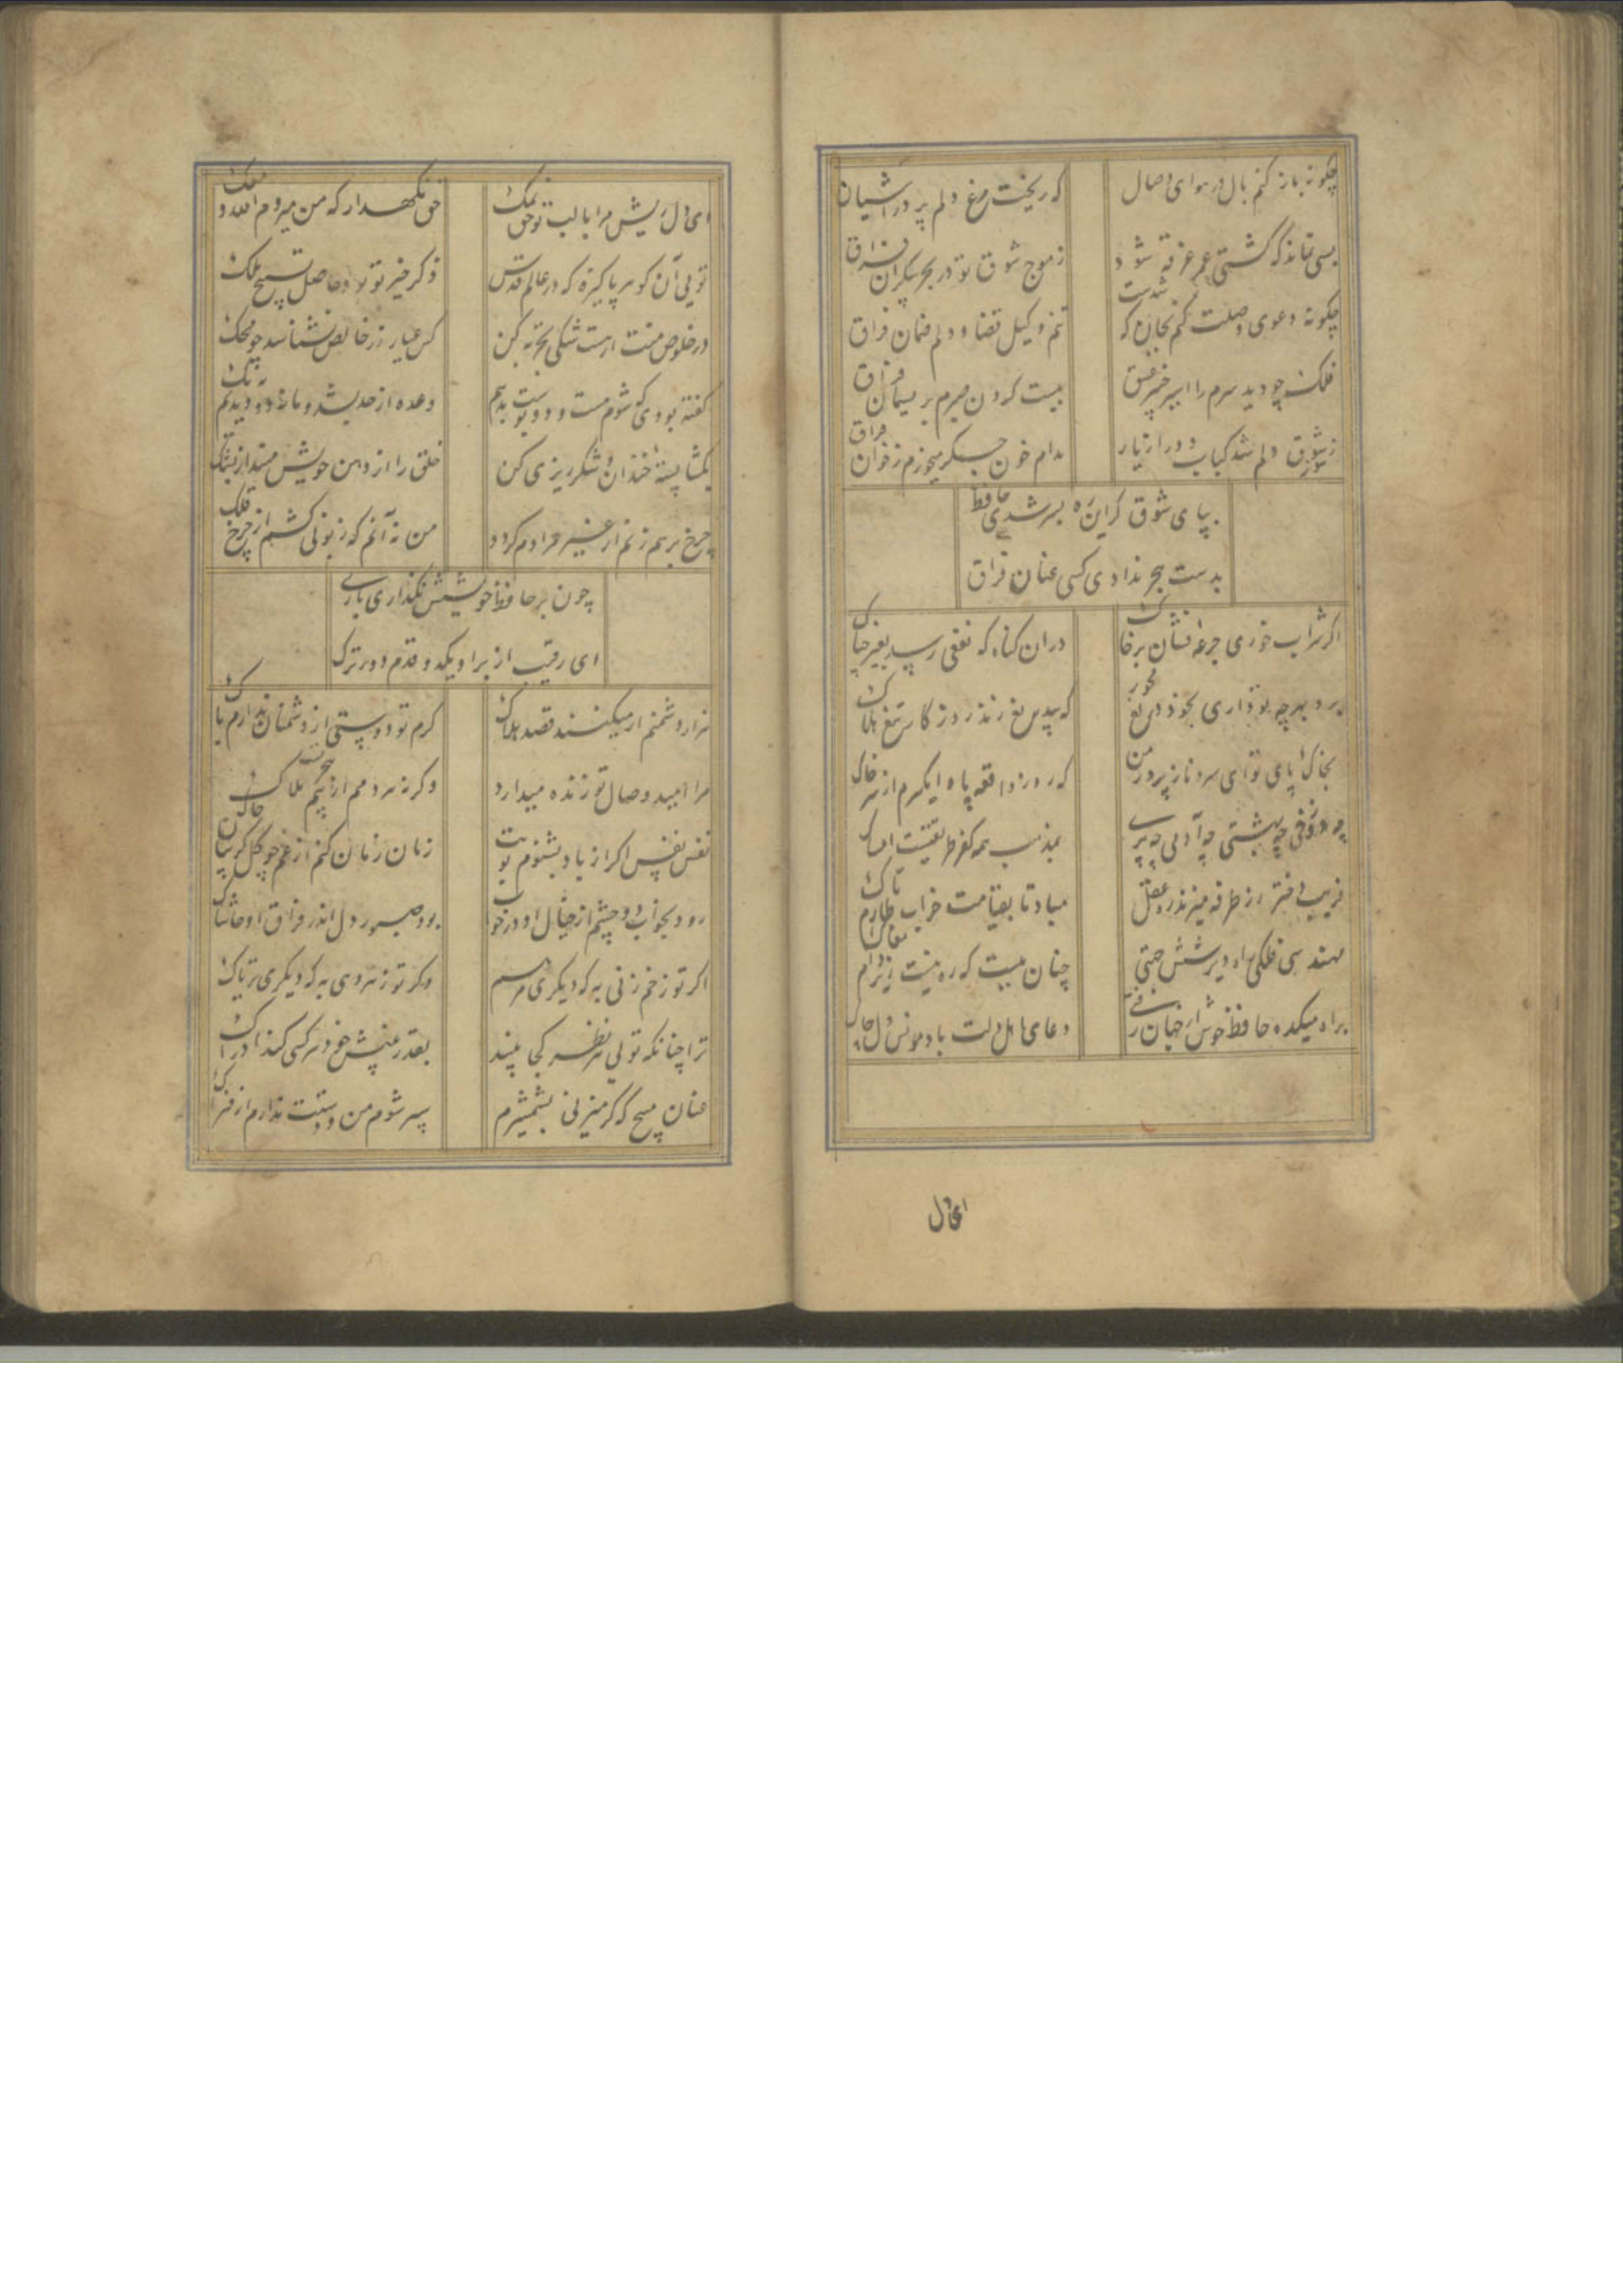 چکونه باز کنم بال در هوای وصال
که ریخت مرغ دلم پر در آشیان
بسی نماند که کشتی عمر غرقه شود
ز موج شوق تو در بحر بیکران فراق
چکونه دعوی وصلت کنم بجان که شدست
تنم وکیل قضا و دلم ضمان فراق
فلک چو دید سرم را اسیر چنبر عشق
ببست کردن صبرم بریسمان فراق
ز سوز شوق دلم شد کباب و دور از یار
مدام خون جکر میخورم ز خوان فراق
بپای شوق کر این ره بسر شدی حافظ
بدست هجر ندادی کسی عنان فراق
اکر شراب خوری جرعه فشان بر خاک
دران کناه که نفعی رسد بغیر چه باک
برو بهر چه تو داری بخور دریغ مخور
که بیدریغ زند روزکار تیغ هلاک
بخاک پای تو ای سرو نازپرور من
که روز واقعه پا وا مکیرم از سر خاک
چه دوزخی چه بهشتی چه آدمی چه پری
بمذهب همه کفر طریقتست امساک
فریب دختر رز طرفه میزند ره عقل
مباد تا بقیامت خراب طارم تاک
مهندس فلکی راه دیر شش جهتی
چنان ببست که ره نیست زیر دام مغاک
براه میکده حافظ خوش از جهان رفتی
دعای اهل دلت باد مونس دل پاک
ای دل
ای دل ریش مرا با لب تو حق نمک
حق نکهدار که من میروم الله معک
تویی آن کوهر پاکیزه که در عالم قدس
ذکر خیر تو بود حاصل تسبیح ملک
در خلوص منت ار هست شکی تجربه کن
کس عیار زر خالص نشناسد چو محک
کفته بودی که شوم مست و دو بوست بدهم
وعده از حد بشد و ما نه دو دیدیم و نه یک
بکشا پسته خندان و شکرریزی کن
خلق را از دهن خویش مینداز بشک
چرخ برهم زنم ار غیر مرادم کردد
من نه آنم که زبونی کشم از چرخ فلک
چون بر حافظ خویشش نکذاری باری
ای رقیب از بر او یکدو قدم دورترک
هزار دشمنم ار میکنند قصد هلاک
کرم تو دوستی از دشمنان ندارم باک
مرا امید وصال تو زنده میدارد
وکرنه هر دمم از هجر تست بیم هلاک
نفس نفس اکر از باد بشنوم بویت
زمان زمان کنم از غم چو کل کریبان چاک
رود بخواب دو چشم از خیال او در خواب
بود صبور دل اندر فراق او حاشاک
اکر تو زخم زنی به که دیکری مرهم
وکر تو زهر دهی به که دیکری تریاک
ترا چنانکه تویی هر نظر کجا بیند
بقدر بینش خود هر کسی کند ادراک
عنان مپیچ که کر میزنی بشمشیرم
سپر شوم من و دستت ندارم از فتراک